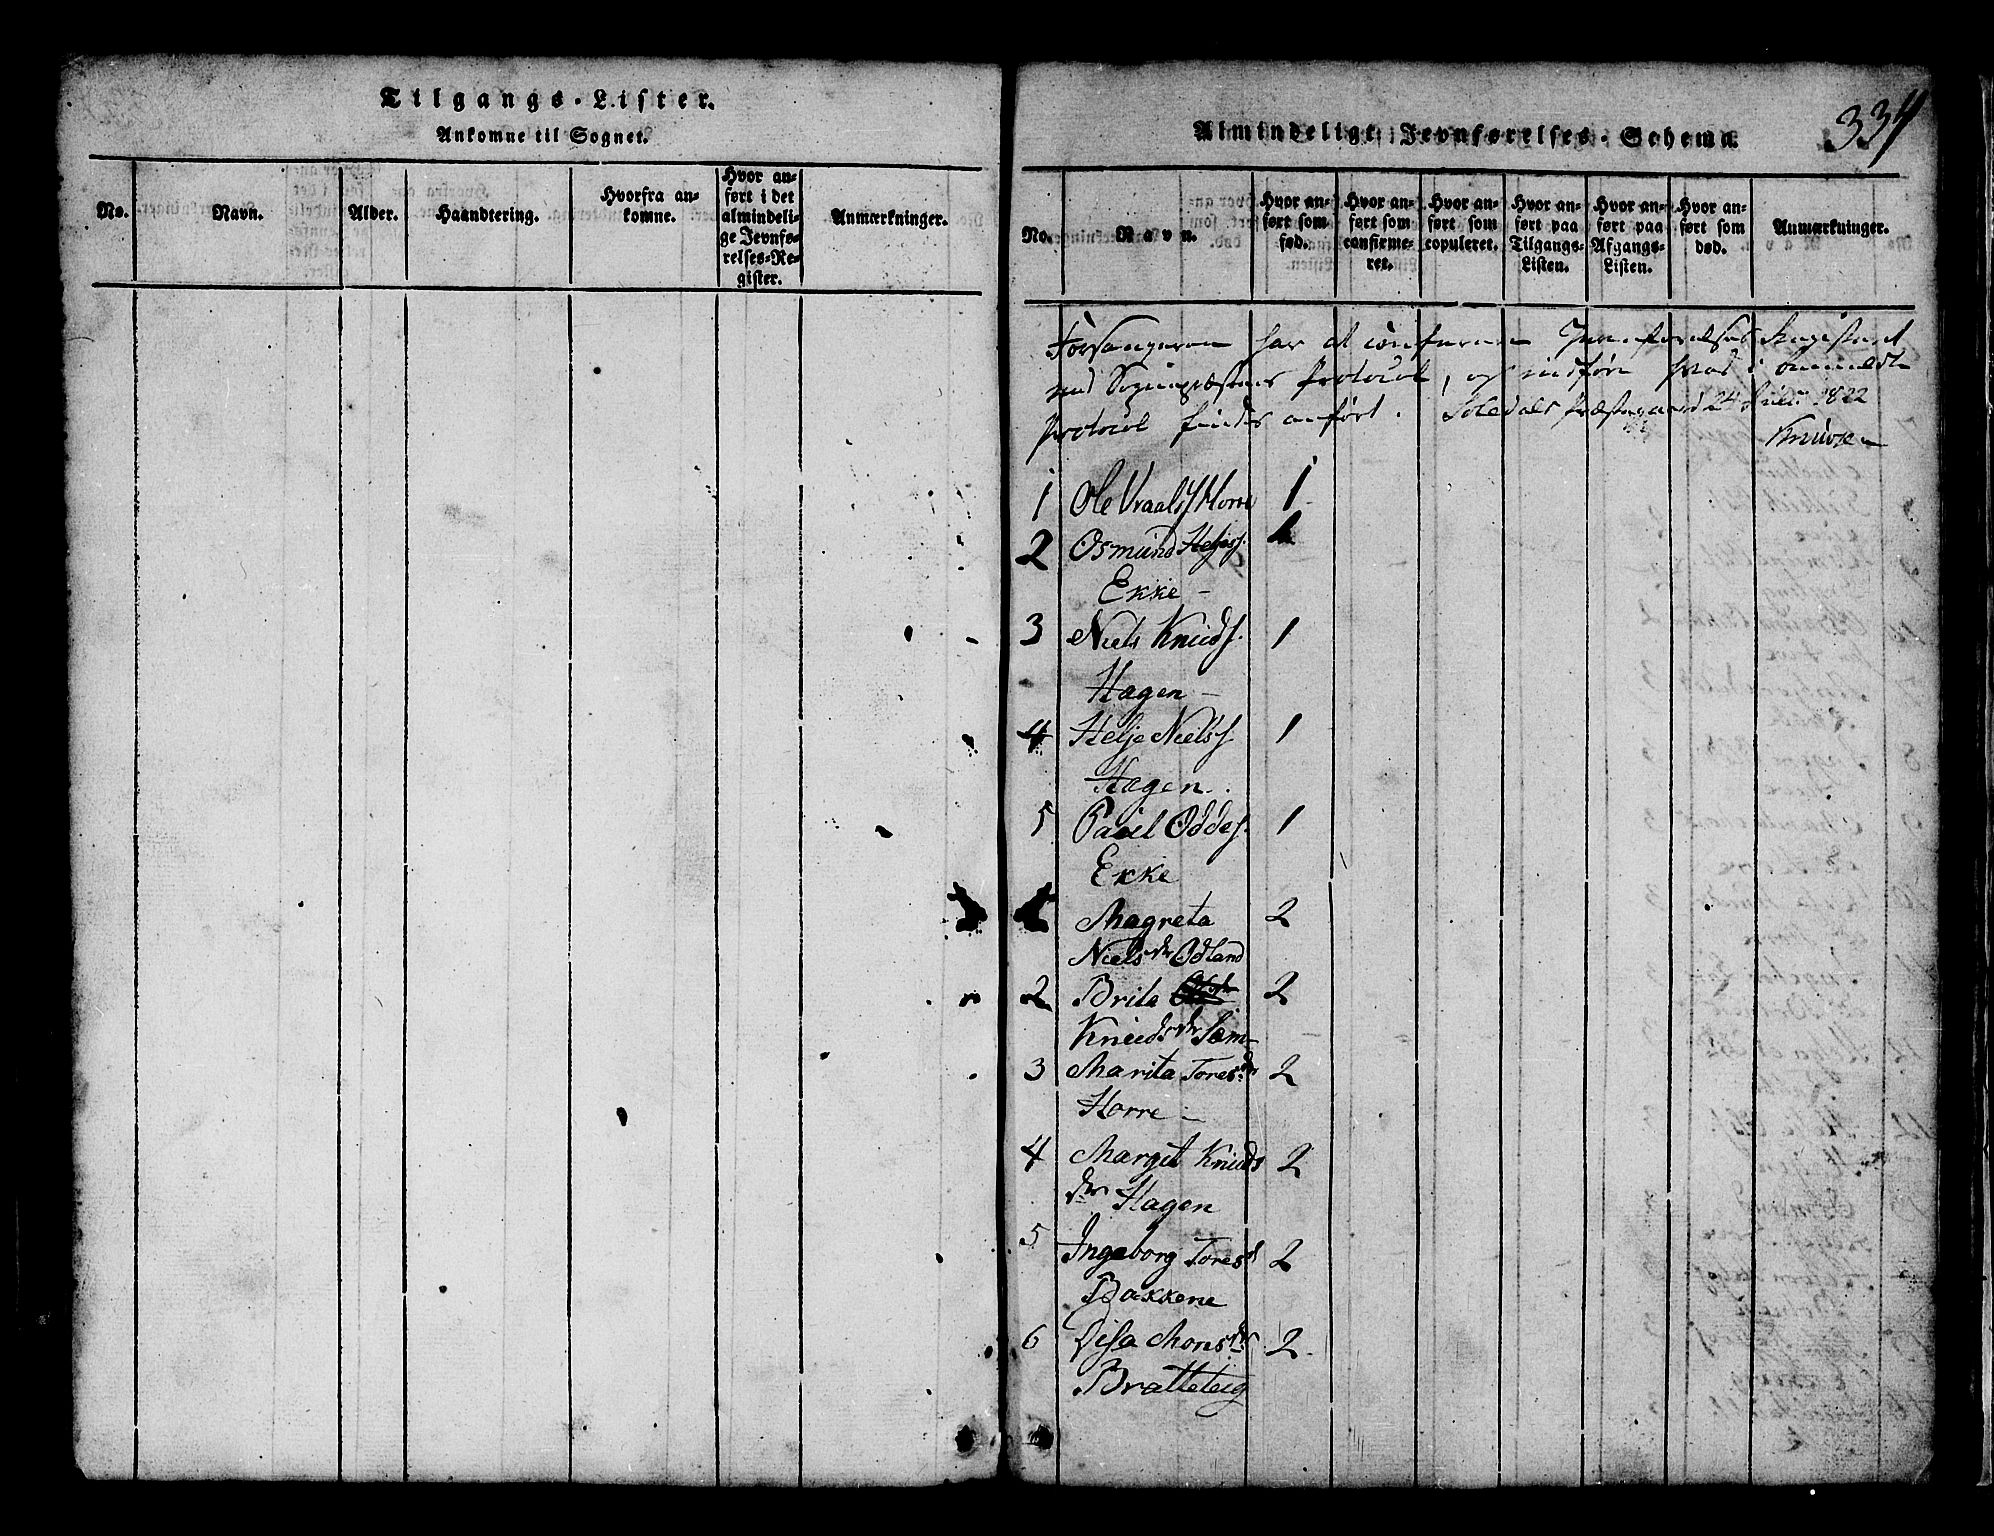 Tilgangs-Lister.
Ankomne til Sognet.
No.
Navn.
Alder.
Haandtering.
Hvorfra an-
komne.
Hvor an-
ført i det
almindeli-
ge Jevnfø-
relses-Re-
gister.
Anmærkninger.
334
Almindeligt Jevnførelses-Schema.
No.
Navn.
Hvor an-
ført som
fød.
Hvor an-
ført som
confirme-
ret.
Hvor an-
ført som
copuleret.
Hvor an-
ført paa
Tilgangs-
Listen.
Hvor an-
ført paa
Afgangs-
Listen.
Hvor an-
ført som
død.
Anmærkninger.
Forsangeren har at conferere Jevnførelses Registeret
med Sognepræstens Protocol, og indføre hvad i anmeldte
Protocol findes anført. Præstegaard 24 Juli 1822
Knudsen
1 Ole Vraals Horre 1
2 Osmund Heljes. 1
Ekke
3 Niels Knuds. 1
Hagen
4 Helje Niels. 1
Hagen
5 Paael Oddes. 1
Ekke
Magreta 2
Nielsdr Odland
2 Brita 2
Knudsdr Søm
3 Marita Toresdr 2
Horre
4 Margit Knuds 2
dr Hagen
5 Ingeborg Toresd 2
Bakkene
6 Monsdr 2
Bratteteig